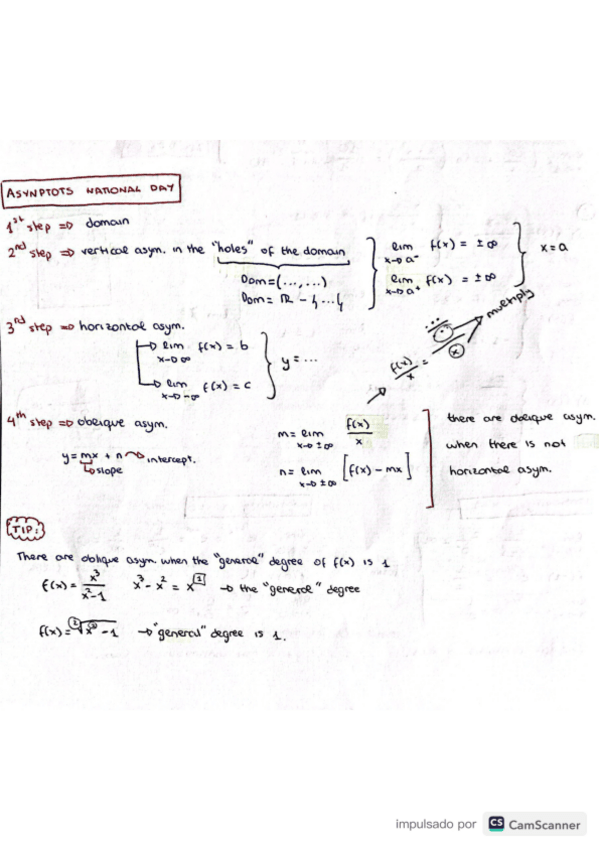 ASYNPTOTS NATIONAL DAY
1st step => domain
2nd step => vertical asym. in the "holes" of the domain
Dom=(...,...)
Dom= R - {...}
lim x→a⁻ f(x) = ±∞
lim x→a⁺ f(x) = ±∞
x=a
3rd step => horizontal asym.
lim x→∞ f(x) = b
lim x→-∞ f(x) = c
y=...
f(x)/x =
x
multiply
4th step => oblique asym.
y=mx + n → intercept.
slope
m= lim x→±∞ f(x)/x
n= lim x→±∞ [f(x) - mx]
there are oblique asym.
when there is not
horizontal asym.
TIP:
There are oblique asym. when the "general" degree of f(x) is 1
f(x)= x³/x²-1 x³-x² = x¹ → the "general" degree
f(x)= ²√x²-1 → "general" degree is 1.
impulsado por CS CamScanner